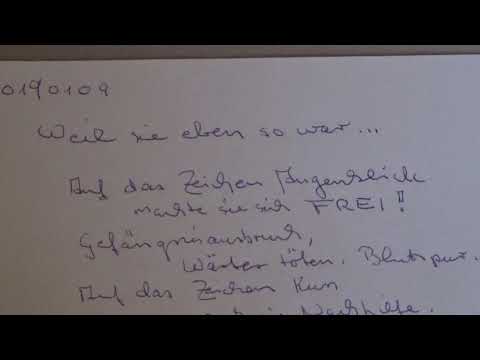 0190109
Weil sie eben so war...
Auf das Zeichen Augenblick
machte sie sich FREI!
Gefängnisausbruch,
Wärter töten. Blutspur.
Auf das Zeichen Kuss
Nachhilfe.